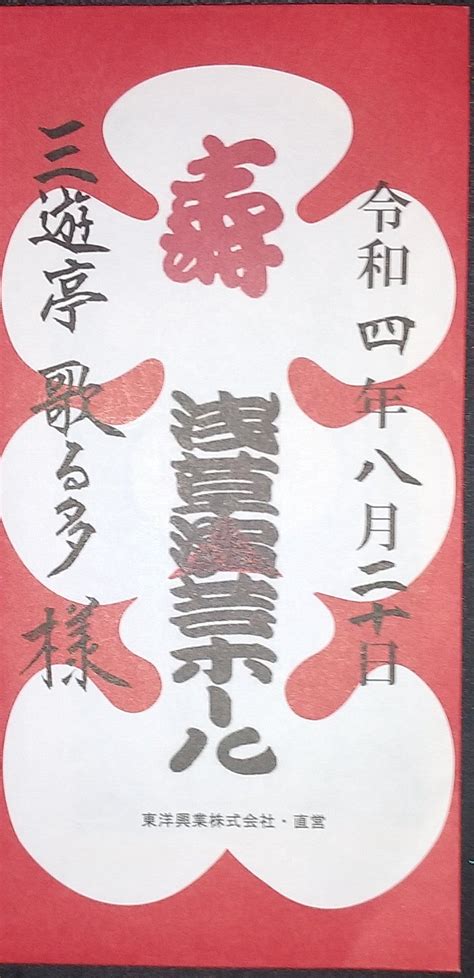 令和四年八月二十日
寿
浅草演芸ホール
東洋興業株式会社・直営
三遊亭 歌る多 様